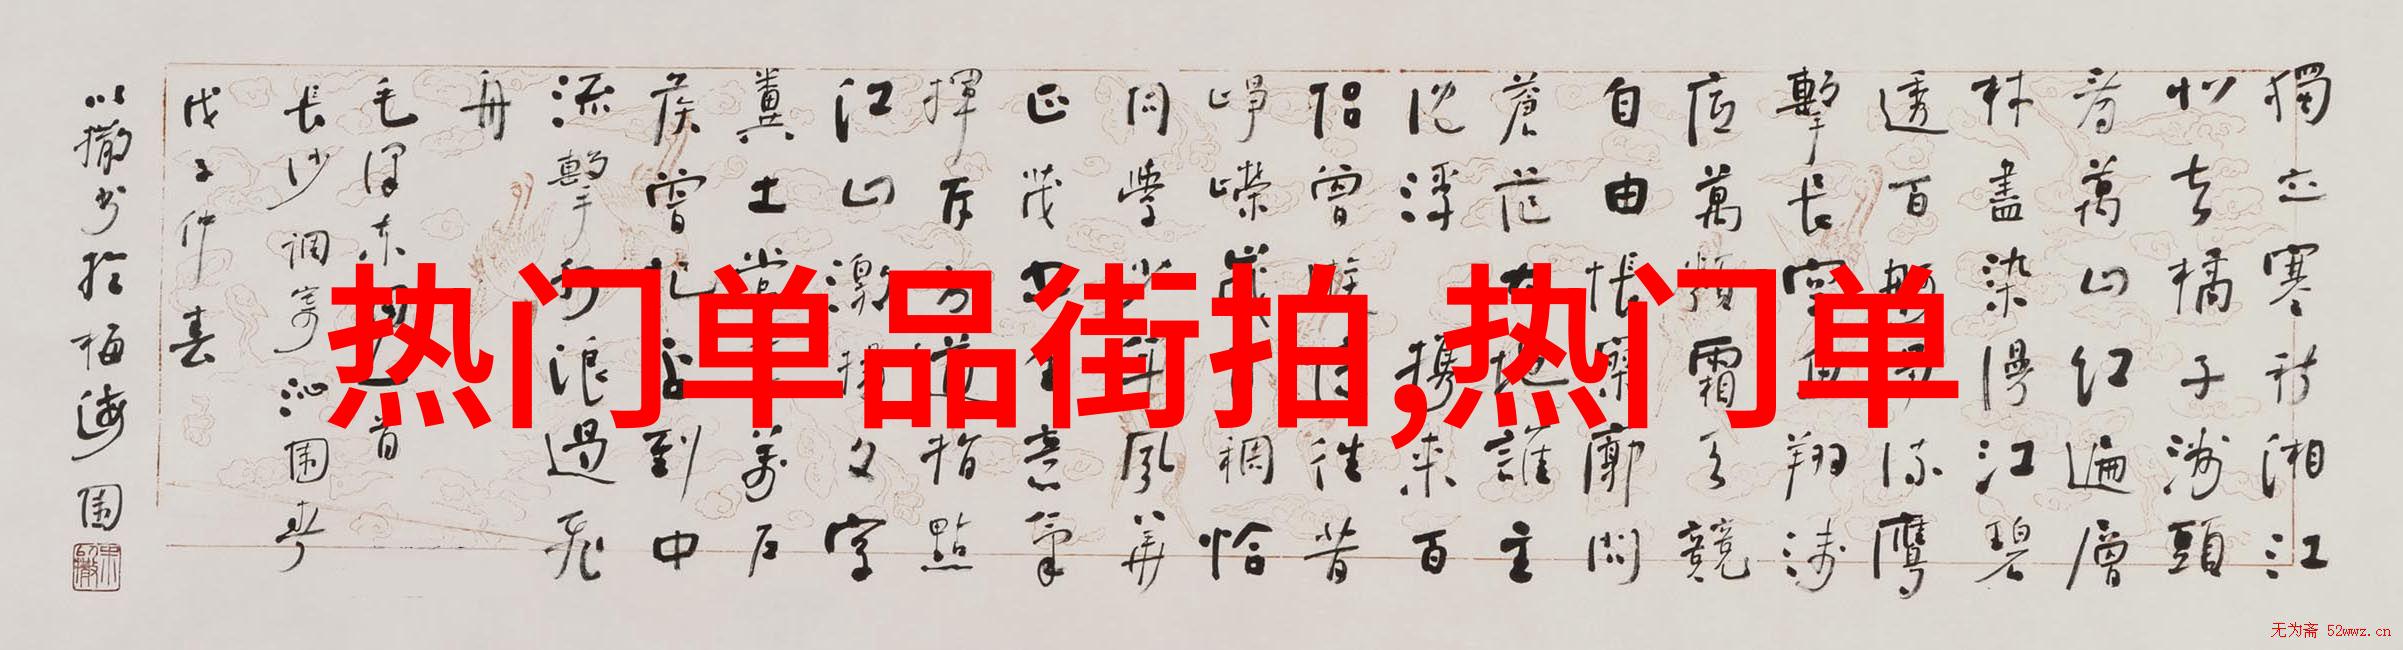 热门单品街拍,热门单
獨立寒秋湘江
北去橘子洲頭
看萬山紅遍層
林盡染漫江碧
透百舸爭流鷹
擊長空魚翔淺
底萬類霜天競
自由悵寥廓問
蒼茫大地誰主
沈浮攜來百
侶曾遊憶往昔
崢嶸歲月稠恰
同學少年風華
正茂書生意氣
揮斥方遒指點
江山激揚文字
糞土當年萬戶
侯曾記否到中
流擊水浪遏飛
舟
毛澤東詞一首
長沙調寄沁園春
戊子仲春
以撒書於梅海園
无为斋 52wwz.cn